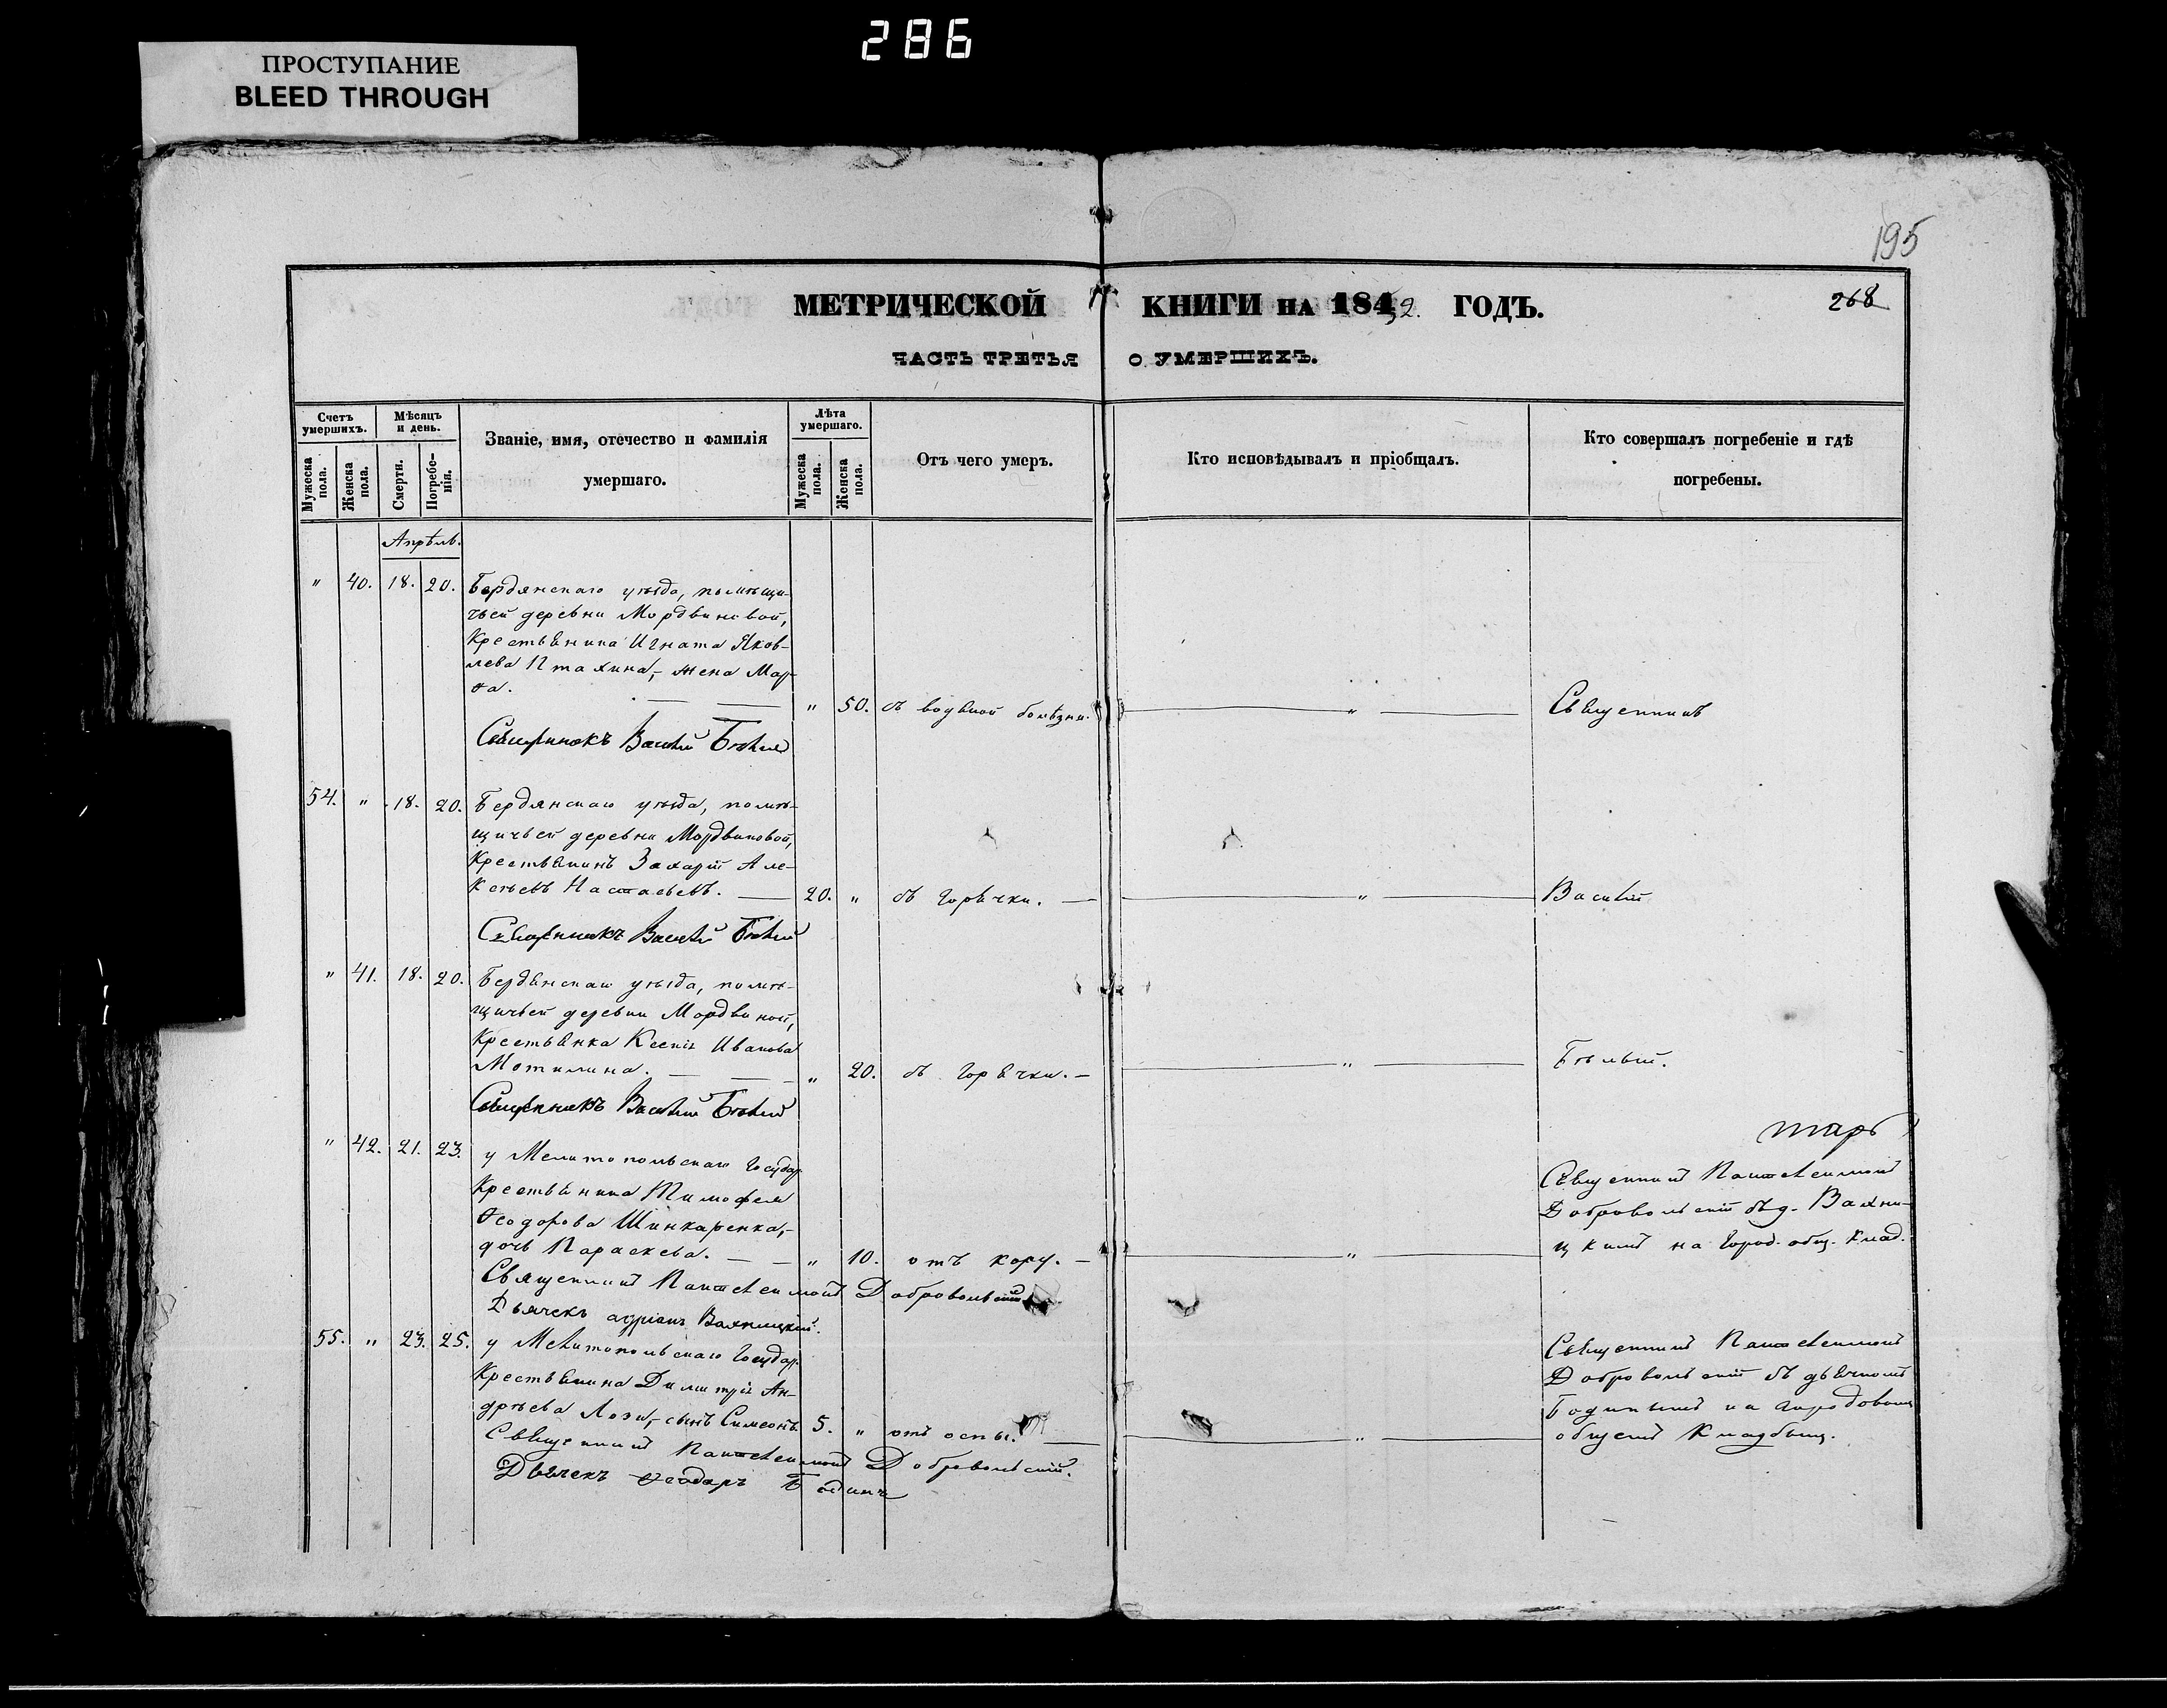 286
ПРОСТУПАНИЕ
BLEED THROUGH
195
МЕТРИЧЕСКОЙ КНИГИ на 1842. ГОДЪ.
268
ЧАСТЬ ТРЕТЬЯ О УМЕРШИХЪ.
Счетъ умершихъ.
Мужеска пола.
Женска пола.
Мѣсяцъ и день.
Смерти.
Погребе-нія.
Званіе, имя, отечество и фамилія
умершаго.
Лѣта умершаго.
Мужеска пола.
Женска пола.
Отъ чего умеръ.
Кто исповѣдывалъ и пріобщалъ.
Кто совершалъ погребеніе и гдѣ
погребены.
Апрѣль.
" 40. 18. 20. Бердянскаго уѣзда, помѣщи-
чьей деревни Мордвиновой,
Крестьянина Игната Яков-
лева Птахина,- жена Мар-
ѳа. " 50. съ водяной болѣзни. " Священникъ
Священникъ Василій Бѣлый
54. " 18. 20. Бердянскаго уѣзда, помѣ-
щичьей деревни Мордвиновой,
Крестьянинъ Захарій Але-
ксѣевъ 20. " съ горячки. " Василій
Священникъ Василій Бѣлый
" 41. 18. 20. Бердянскаго уѣзда, помѣ-
щичьей деревни
Крестьянка Ксенія Иванова
Мотилина. " 20. съ горячки. " Бѣлый.
Священникъ Василій Бѣлый
" 42. 21. 23. у Мелитопольскаго Государ.
Крестьянина Тимофея
Ѳеодорова Шинкаренка,-
дочь Параскева. " 10. отъ кору. "
Священникъ Пантелеимонъ
Добровольскій съ д. Вахни-
цкимъ на город. общ. клад.
Священникъ Пантелеимонъ Добровольскій
Дьячекъ Адріанъ Вахницкій.
55. " 23. 25. у Мелитопольскаго Государ.
Крестьянина Димитрія Ан-
дреева Лозы,- сынъ Симеонъ. 5. " отъ оспы. "
Священникъ Пантелеимонъ
Добровольскій съ дьячкомъ
Бодинымъ на городовомъ
общемъ Кладбищ.
Священникъ Пантелеимонъ Добровольскій.
Дьячекъ Ѳеодоръ Бодинъ